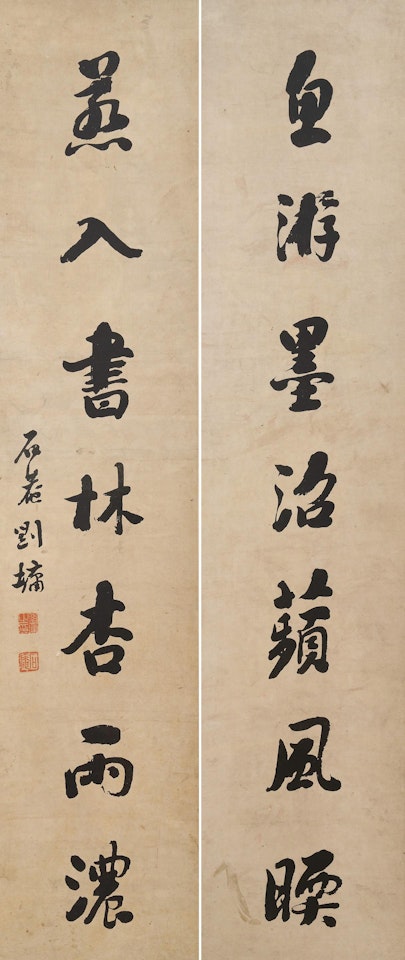 魚游墨沼蘋風暖
燕入書林杏雨濃
石菴劉墉